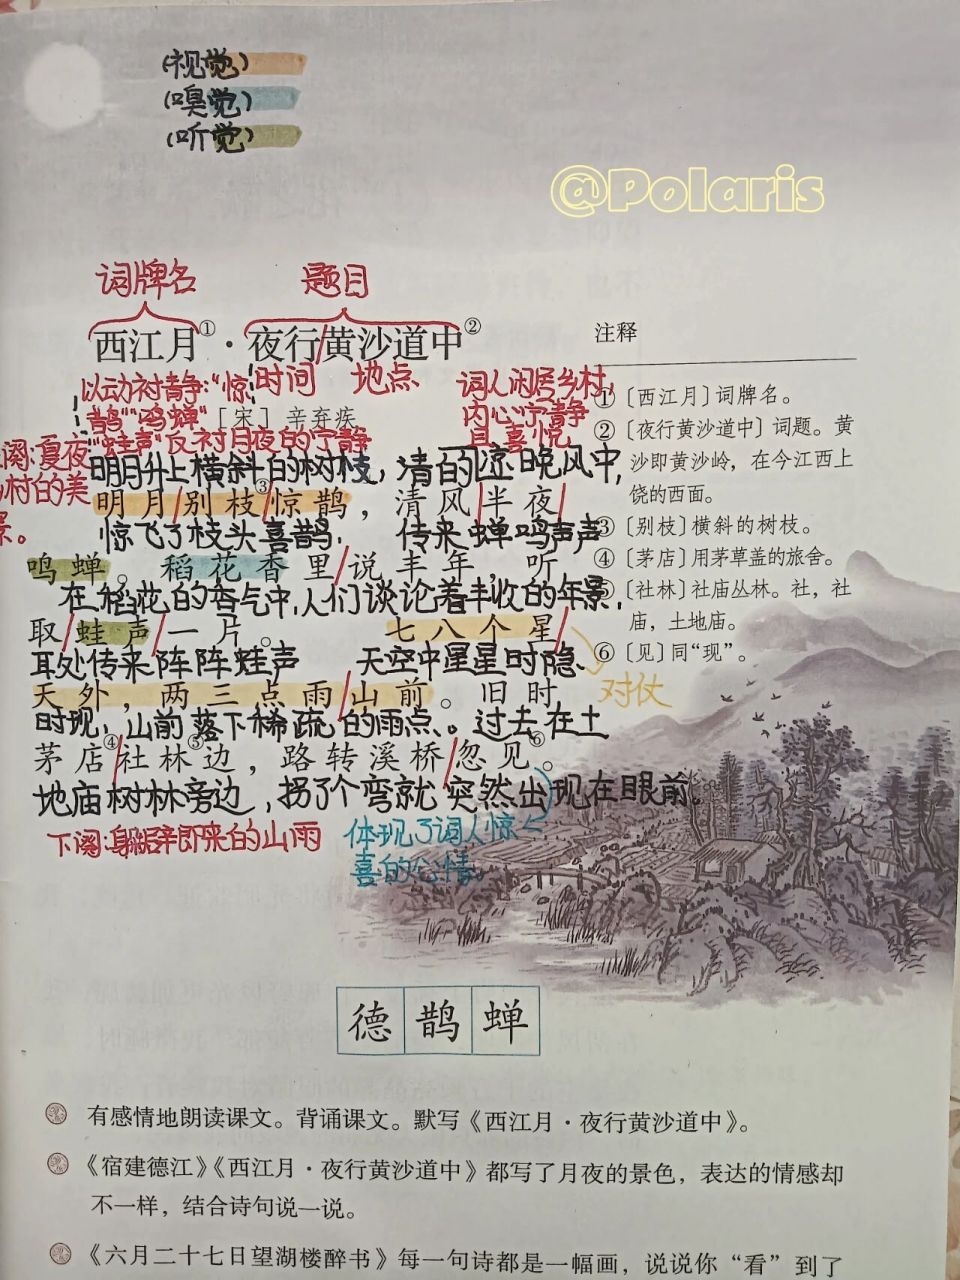 (视觉)
(嗅觉)
(听觉)
@Polaris
词牌名 题目
西江月①·夜行/黄沙道中②
以动衬静:“惊 时间 地点
鹊”“鸣蝉”
“蛙声”反衬月夜的宁静
词人闲居乡村,
内心宁静
且喜悦
[宋] 辛弃疾
阕:夏夜
村的美
景。
明月升上横斜的树枝,清的凉晚风中,
明月/别枝③/惊鹊,清风/半夜/
惊飞了枝头喜鹊. 传来蝉鸣声声
鸣蝉。稻花香里/说丰年,听
在稻花的香气中,人们谈论着丰收的年景,
取/蛙声/一片。 七八个星/
耳处传来阵阵蛙声 天空中星星时隐、
天外,两三点雨/山前。旧时
对仗
时现,山前落下稀疏的雨点。过去在土
茅店④/社林⑤边,路转溪桥/忽见⑥。
地庙树林旁边,拐了个弯就突然出现在眼前。
下阕:躲避即来的山雨
体现了词人惊
喜的心情。
注释
①〔西江月〕词牌名。
②〔夜行黄沙道中〕词题。黄
沙即黄沙岭,在今江西上
饶的西面。
③〔别枝〕横斜的树枝。
④〔茅店〕用茅草盖的旅舍。
⑤〔社林〕社庙丛林。社,社
庙,土地庙。
⑥〔见〕同“现”。
德 鹊 蝉
有感情地朗读课文。背诵课文。默写《西江月·夜行黄沙道中》。
《宿建德江》《西江月·夜行黄沙道中》都写了月夜的景色,表达的情感却
不一样,结合诗句说一说。
《六月二十七日望湖楼醉书》每一句诗都是一幅画,说说你“看”到了